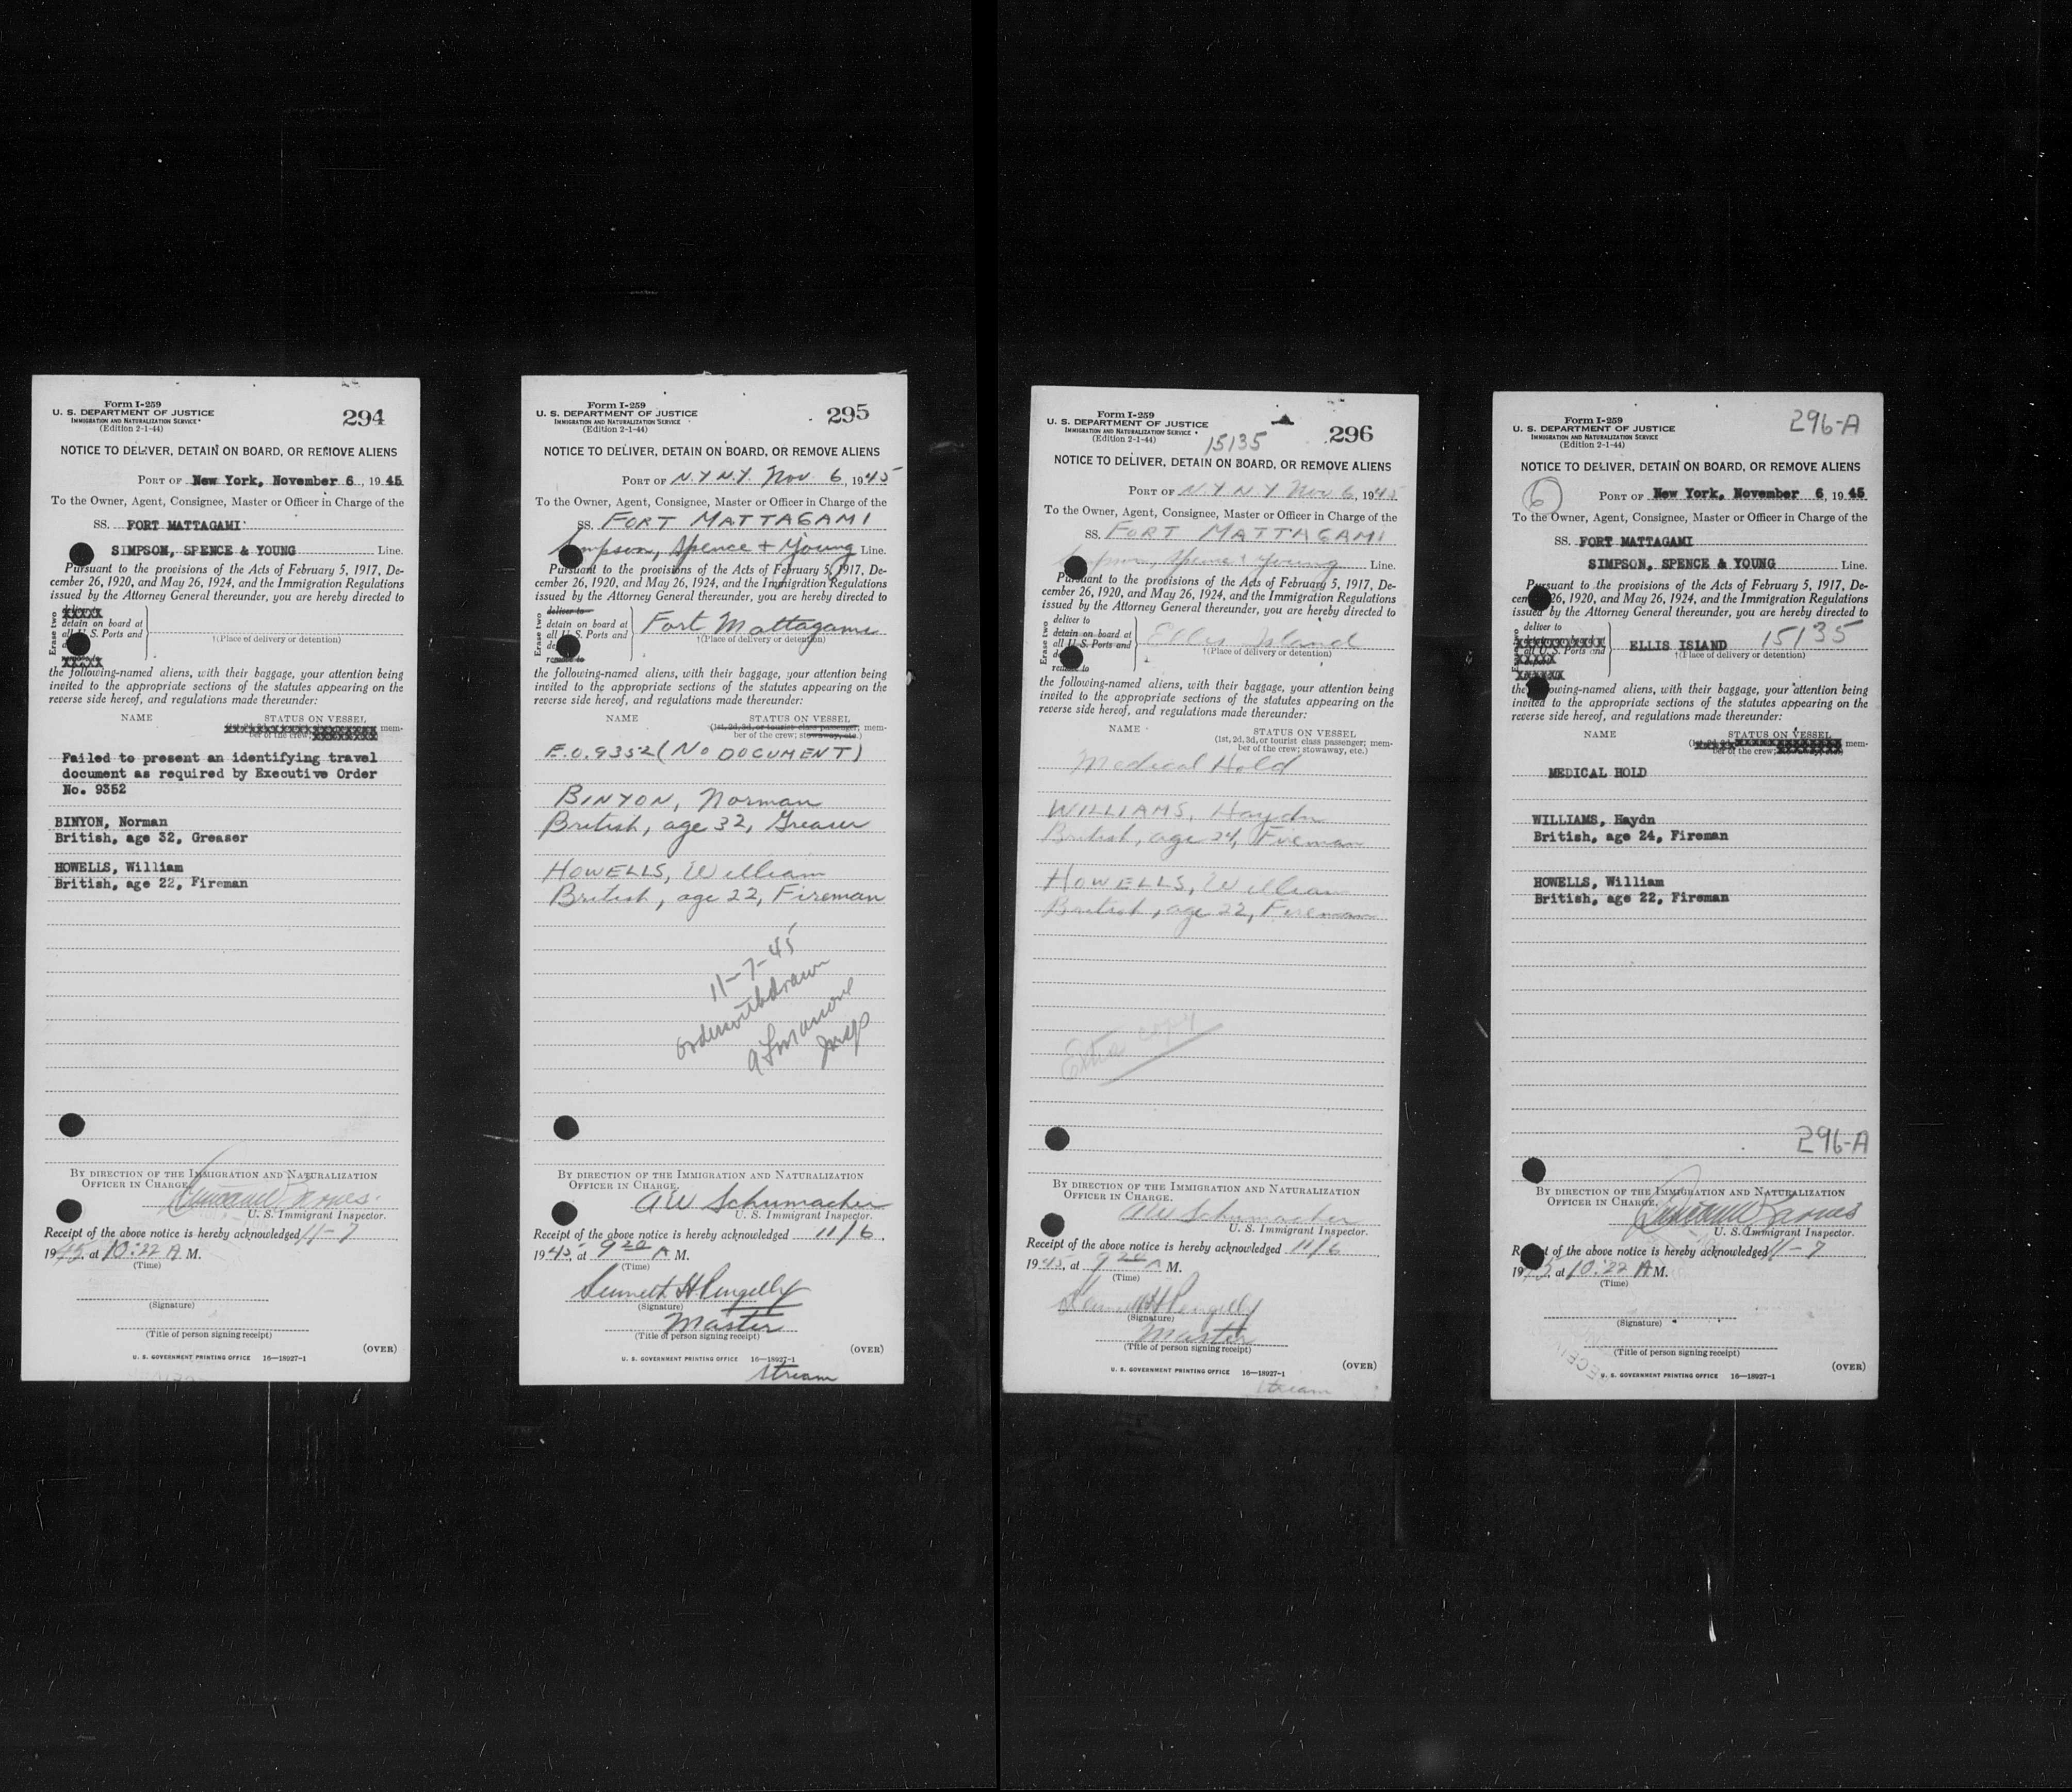 Form I-259
U. S. DEPARTMENT OF JUSTICE
IMMIGRATION AND NATURALIZATION SERVICE
(Edition 2-1-44)
294
NOTICE TO DELIVER, DETAIN ON BOARD, OR REMOVE ALIENS
PORT OF New York, November 6, 1945
To the Owner, Agent, Consignee, Master or Officer in Charge of the
SS. FORT MATTAGAMI
SIMPSON, SPENCE & YOUNG Line.
Pursuant to the provisions of the Acts of February 5, 1917, De-
cember 26, 1920, and May 26, 1924, and the Immigration Regulations
issued by the Attorney General thereunder, you are hereby directed to
Erase two
detain on board at
all U. S. Ports and
†(Place of delivery or detention)
the following-named aliens, with their baggage, your attention being
invited to the appropriate sections of the statutes appearing on the
reverse side hereof, and regulations made thereunder:
NAME STATUS ON VESSEL
mem-
ber of the crew;
Failed to present an identifying travel
document as required by Executive Order
No. 9352
BINYON, Norman
British, age 32, Greaser
HOWELLS, William
British, age 22, Fireman
BY DIRECTION OF THE IMMIGRATION AND NATURALIZATION
OFFICER IN CHARGE.
U. S. Immigrant Inspector.
Receipt of the above notice is hereby acknowledged 11-7
1945, at 10:22 A M.
(Time)
(Signature)
(Title of person signing receipt)
(OVER)
U. S. GOVERNMENT PRINTING OFFICE 16—18927-1
Form I-259
U. S. DEPARTMENT OF JUSTICE
IMMIGRATION AND NATURALIZATION SERVICE
(Edition 2-1-44)
295
NOTICE TO DELIVER, DETAIN ON BOARD, OR REMOVE ALIENS
PORT OF N.Y N.Y. Nov. 6, 1945
To the Owner, Agent, Consignee, Master or Officer in Charge of the
SS. FORT MATTAGAMI
Simpson, Spence + Young Line.
Pursuant to the provisions of the Acts of February 5, 1917, De-
cember 26, 1920, and May 26, 1924, and the Immigration Regulations
issued by the Attorney General thereunder, you are hereby directed to
Erase two
deliver to
detain on board at
all U. S. Ports and
remove to
Fort Mattagami
†(Place of delivery or detention)
the following-named aliens, with their baggage, your attention being
invited to the appropriate sections of the statutes appearing on the
reverse side hereof, and regulations made thereunder:
NAME STATUS ON VESSEL
(1st, 2d, 3d, or tourist class passenger; mem-
ber of the crew; stowaway, etc.)
E.O. 9352 (NO DOCUMENT)
BINYON, Norman
British, age 32, Greaser
HOWELLS, William
British, age 22, Fireman
11-7-45
order withdrawn
Insp
BY DIRECTION OF THE IMMIGRATION AND NATURALIZATION
OFFICER IN CHARGE.
A W Schumacher
U. S. Immigrant Inspector.
Receipt of the above notice is hereby acknowledged 11/6
1945, at 9 20 A M.
(Time)
Kenneth H Pengelly
(Signature)
Master
(Title of person signing receipt)
(OVER)
U. S. GOVERNMENT PRINTING OFFICE 16—18927-1
Stream
Form I-259
U. S. DEPARTMENT OF JUSTICE
IMMIGRATION AND NATURALIZATION SERVICE
(Edition 2-1-44)
15135
296
NOTICE TO DELIVER, DETAIN ON BOARD, OR REMOVE ALIENS
PORT OF N.Y N.Y Nov. 6, 1945
To the Owner, Agent, Consignee, Master or Officer in Charge of the
SS. FORT MATTAGAMI
Simpson, Spence + Young Line.
Pursuant to the provisions of the Acts of February 5, 1917, De-
cember 26, 1920, and May 26, 1924, and the Immigration Regulations
issued by the Attorney General thereunder, you are hereby directed to
Erase two
deliver to
detain on board at
all U. S. Ports and
remove to
Ellis Island
†(Place of delivery or detention)
the following-named aliens, with their baggage, your attention being
invited to the appropriate sections of the statutes appearing on the
reverse side hereof, and regulations made thereunder:
NAME STATUS ON VESSEL
(1st, 2d, 3d, or tourist class passenger; mem-
ber of the crew; stowaway, etc.)
Medical Hold
WILLIAMS, Haydn
British, age 24, Fireman
HOWELLS, William
British, age 22, Fireman
Extra copy
BY DIRECTION OF THE IMMIGRATION AND NATURALIZATION
OFFICER IN CHARGE.
A W Schumacher
U. S. Immigrant Inspector.
Receipt of the above notice is hereby acknowledged 11/6
1945, at 9 20 A M.
(Time)
Kenneth H Pengelly
(Signature)
Master
(Title of person signing receipt)
(OVER)
U. S. GOVERNMENT PRINTING OFFICE 16—18927-1
Stream
Form I-259
U. S. DEPARTMENT OF JUSTICE
IMMIGRATION AND NATURALIZATION SERVICE
(Edition 2-1-44)
296-A
NOTICE TO DELIVER, DETAIN ON BOARD, OR REMOVE ALIENS
6
PORT OF New York, November 6, 1945
To the Owner, Agent, Consignee, Master or Officer in Charge of the
SS. FORT MATTAGAMI
SIMPSON, SPENCE & YOUNG Line.
Pursuant to the provisions of the Acts of February 5, 1917, De-
cember 26, 1920, and May 26, 1924, and the Immigration Regulations
issued by the Attorney General thereunder, you are hereby directed to
deliver to
all U. S. Ports and
ELLIS ISLAND 15135
†(Place of delivery or detention)
the following-named aliens, with their baggage, your attention being
invited to the appropriate sections of the statutes appearing on the
reverse side hereof, and regulations made thereunder:
NAME STATUS ON VESSEL
mem-
ber of the crew;
MEDICAL HOLD
WILLIAMS, Haydn
British, age 24, Fireman
HOWELLS, William
British, age 22, Fireman
296-A
BY DIRECTION OF THE IMMIGRATION AND NATURALIZATION
OFFICER IN CHARGE.
U. S. Immigrant Inspector.
Receipt of the above notice is hereby acknowledged 11-7
1945, at 10:22 A M.
(Time)
(Signature)
(Title of person signing receipt)
(OVER)
U. S. GOVERNMENT PRINTING OFFICE 16—18927-1